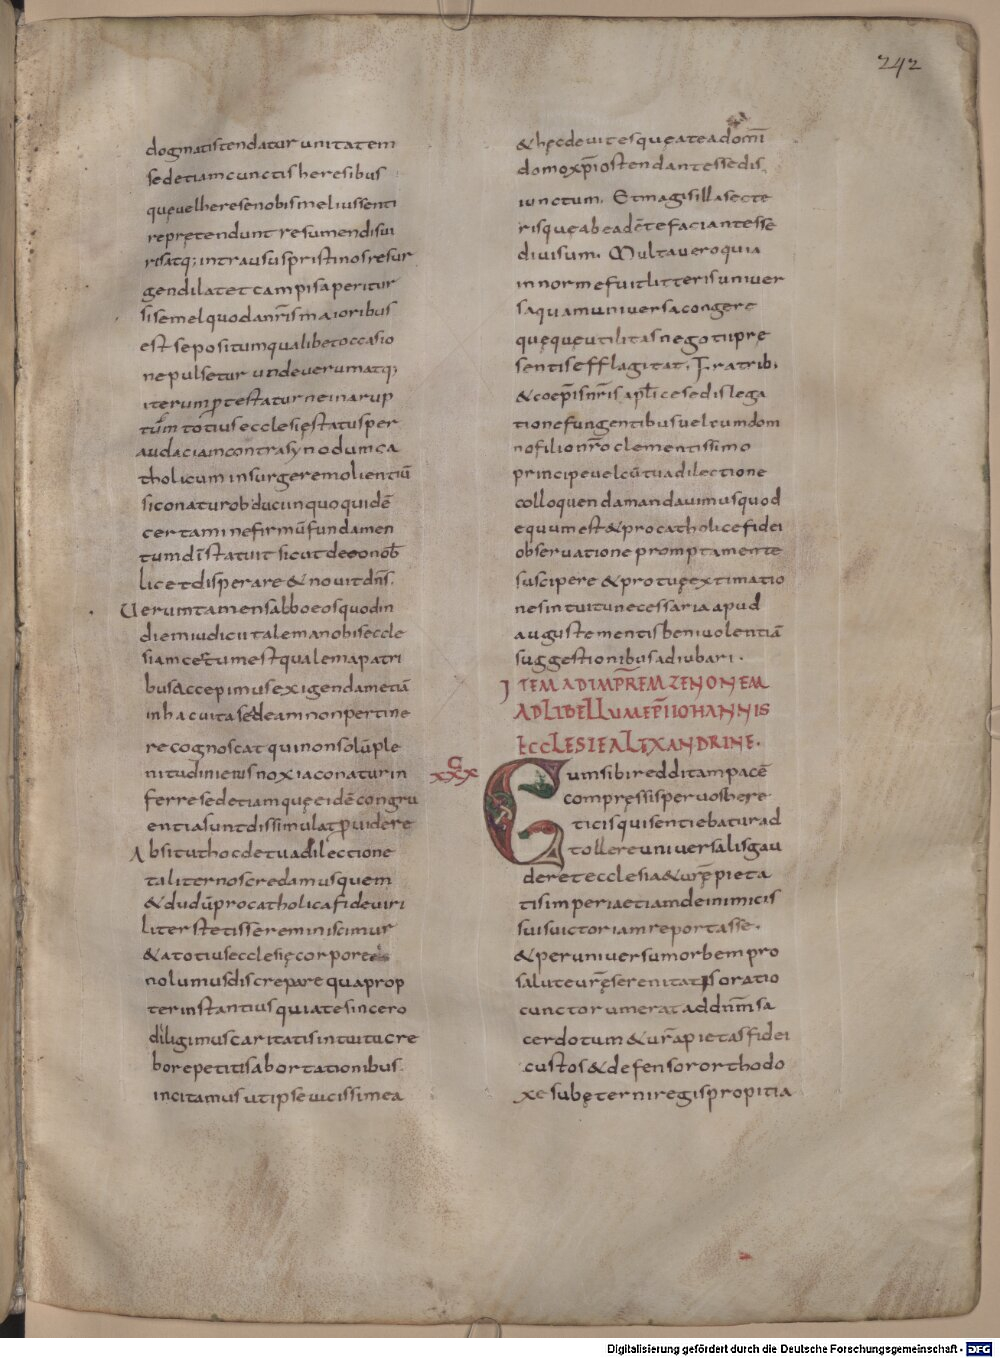 242
dogmatis tendatur unitatem
sed etiam cunctis heresibus
quę vel herese nobis melius senti
repretendunt resumendi sui
risatq; intra usus pristinos resur
gendi latet campis aperitur
si semel quod a nr̄is maioribus
est sepositum qualibet occasio
ne pulsetur unde verum atq;
iterum ꝓtestatur ne inarup
tūm totius ecclesię status per
audaciam contra synodum ca
tholicum insurgere molientiū
si conatur obducun quo quidē
certamine firmū fundamen
tum dī statuit sicut deo nob̄
licet disperare & novit dn̄s.
Veruntamen sabbo eos quod in
diem iudicii talem a nobis eccle
siam certum est qualem a patri
bus accepimus exigendam etiā
in hac vita sedeam non pertine
re cognoscat qui non solū ple
nitudini eius noxia conatur in
ferre sed etiam quę eidē congru
entia sunt dissimulat ꝓvidere
Absit ut hoc de tua dilectione
taliter nos credamus quem
& dudū pro catholica fide viri
liter stetisse reminiscimur
& a totius ecclesię corpore
nolumus discrepare qua prop
ter instantius quia te sincero
diligimus caritatis intuitu cre
bo repetitis abortationibus
incitamus ut ipse vicissim ea
& hęc devites quę a te a domī
domo xp̄i ostendant esse dis
iunctum. Et magis illa secte
ris quę ab ea dē te faciant esse
divisum. Multa vero quia
in norme fuit litteris univer
sa quam universa congere
quę quę utilitas negotii pre
sentis efflagitat. Fratrib;
& coep̄is nr̄is ap̄lice sedis lega
tione fungentibus vel cum dom
no filio nr̄o clementissimo
principe vel cū tua dilectione
colloquenda mandavimus quod
equum est & pro catholice fidei
observatione prompta mente
suscipere & pro tuę extimatio
nes intuitu necessaria apud
auguste mentis benivolentiā
suggestionibus adiubari.
ITEM AD IMPR̄EM ZENONEM
AD LIBELLUM EP̄I IOHANNIS
ECCLESIE ALEXANDRINE.
XXXC
Cum sibi redditam pacē
compressis per vos here
ticis qui sentiebatur ad
tollere universalis gau
deret ecclesia & ur̄ę pieta
tis imperia etiam de inimicis
suis victoriam reportasse.
& per universum orbem pro
salute ur̄ę serenitatis oratio
cunctorum erat ad dn̄m sa
cerdotum & ur̄a pietas fidei
custos & defensor orthodo
xe sub ęterni regis propitia
Digitalisierung gefördert durch die Deutsche Forschungsgemeinschaft - DFG